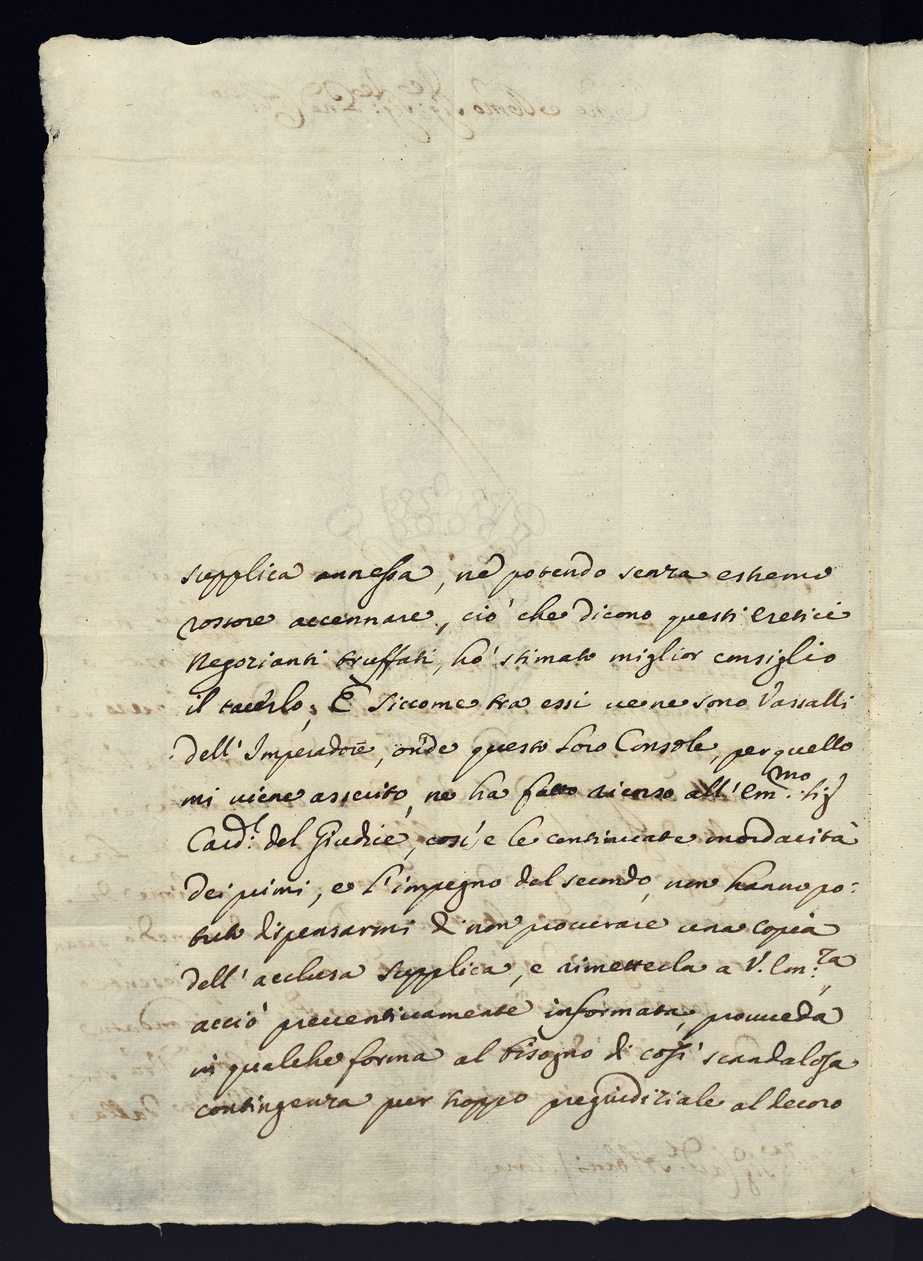 supplica annessa, nè potendo senza estremo
rossore accennare, ciò che dicono questi eretici
Negozianti truffati, hò stimato miglior consiglio
il tacerlo; E siccome tra essi ve ne sono Vassalli
dell'Imperadore, onde questo loro Console, per quello
mi viene asserito, ne ha fatto ricorso all'Em.mo Sig.r
Card.l del Giudice, così e le continuate mordacità
dei primi, e l'impegno del secondo, non hanno po:
tuto dispensarmi di non procurare una copia
dell'acclusa supplica, e rimetterla a V. Em.za,
acciò preventivamente informata, proveda
in qualche forma al bisogno di così scandalosa
contingenza per troppo pregiudiziale al decoro